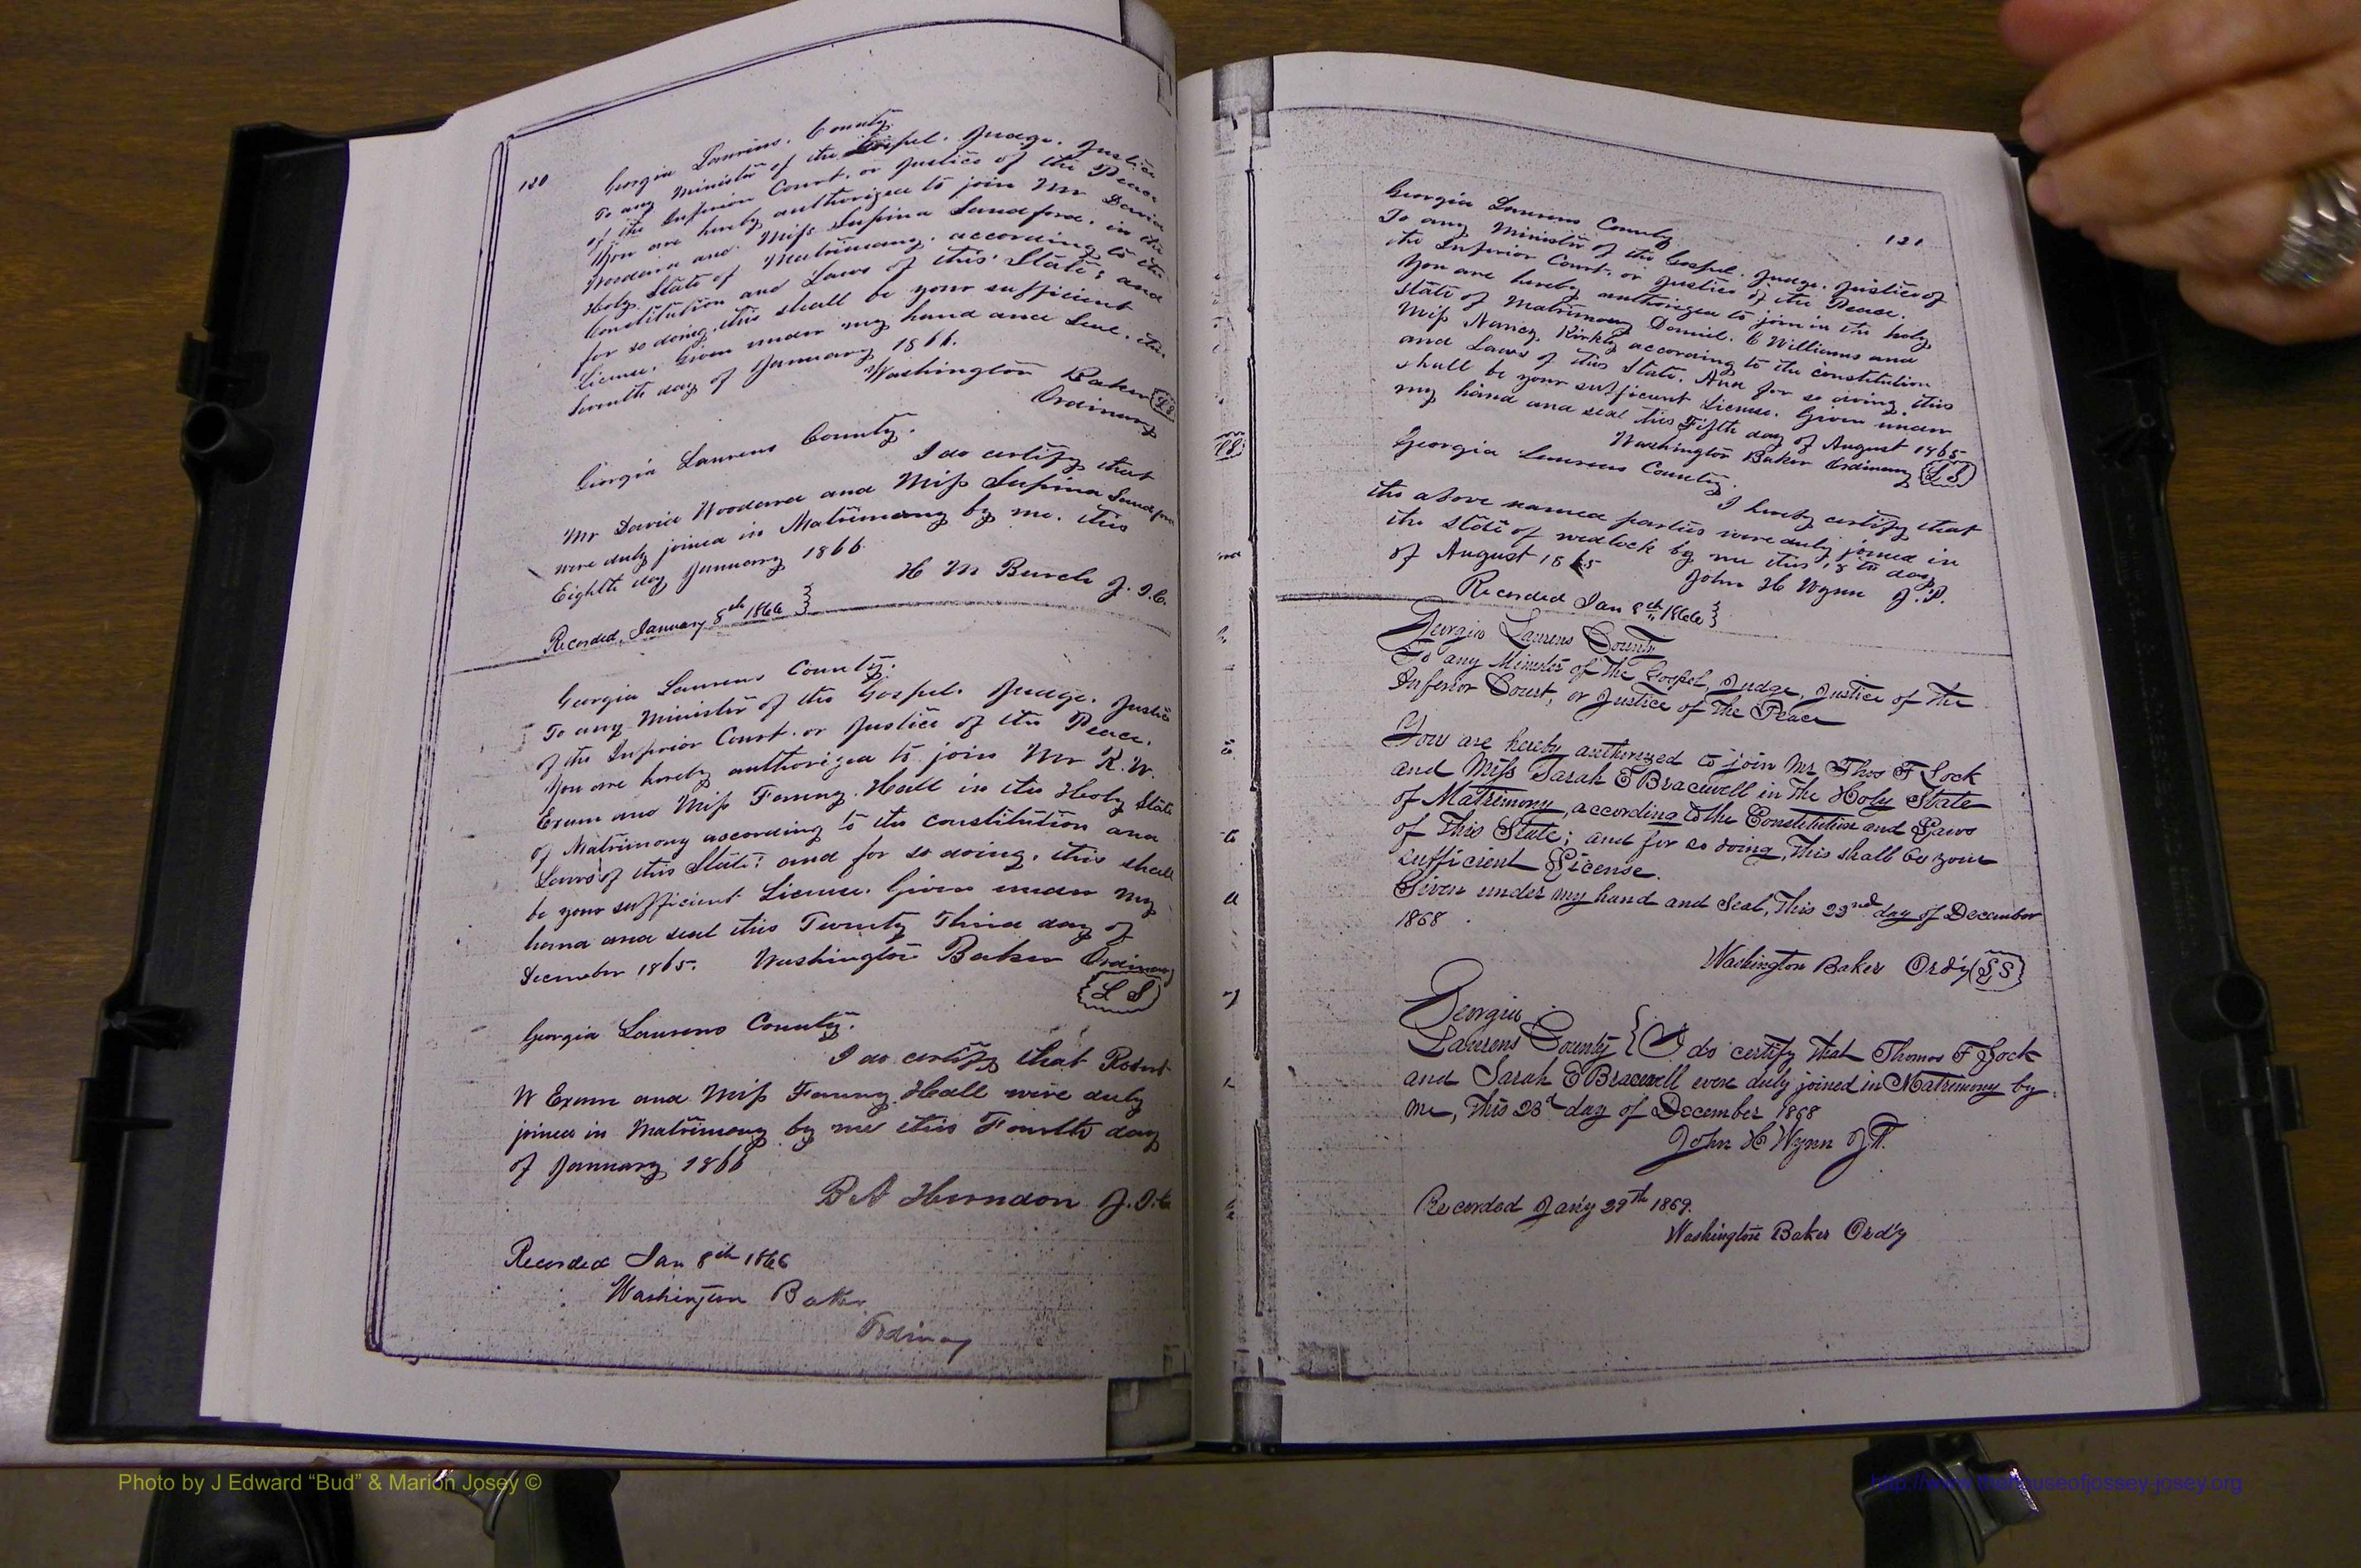 120
Georgia Laurens County.
To any Minister of the Gospel. Judge. Justice
of the Inferior Court. or Justice of the Peace
You are hereby authorized to join Mr David
Woodard and Miss Supina Sandford. in the
Holy State of Matrimony. according to the
Constitution and Laws of this State; and
for so doing, this shall be your sufficient
License. Given under my hand and Seal. this
Seventh day of January 1866.
Washington Baker (LS)
Ordinary
Georgia Laurens County.
I do certify that
Mr David Woodard and Miss Supina Sandford
were duly joined in Matrimony by me. this
Eighth day January 1866.
H M Burch J.I.C.
Recorded, January 8th 1866 }
Georgia Laurens County.
To any Minister of the Gospel. Judge. Justice
of the Inferior Court. or Justice of the Peace.
You are hereby authorized to join Mr R. W.
Exum and Miss Fanny. Hall in the Holy State
of Matrimony according to the constitution and
Laws of this State; and for so doing, this shall
be your sufficient License. Given under my
hand and seal this Twenty Third day of
December 1865. Washington Baker Ordinary
(L S)
Georgia Laurens County.
I do certify that Robert
W Exum and Miss Fanny Hall were duly
joined in Matrimony by me this Fourth day
of January 1866
B A Herndon J.I.C
Recorded Jan 8th 1866
Washington Baker
Ordinary
121
Georgia Laurens County
To any Minister of the Gospel. Judge. Justice of
the Inferior Court. or Justice of the Pease.
You are hereby authorized to join in the holy
state of Matrimony Daniel. E Williams and
Miss Nancy Kirkly according to the constitution
and Laws of this State. And for so doing this
shall be your sufficient License. Given under
my hand and seal this Fifth day of August 1865
Washington Baker Ordinary (L S)
Georgia Laurens County.
I hereby certify that
the above named parties were duly joined in
the state of wedlock by me this 18th day
of August 1865
John H Wynn J.P.
Recorded Jan 8th 1866 }
Georgia Laurens County
To any Minister of the Gospel, Judge, Justice of the
Inferior Court, or Justice of the Peace
You are hereby authorized to join Mr Thos F Lock
and Miss Sarah E Bracewell in the Holy State
of Matrimony, according to the Constitution and Laws
of this State; and for so doing, this shall be your
sufficient License.
Given under my hand and Seal, this 23nd day of December
1868
Washington Baker Ord'y (LS)
Georgia
Laurens County { I do certify that Thomas F Lock
and Sarah E Bracewell were duly joined in Matrimony by
me, this 23d day of December 1868
John H Wynn J P.
Recorded Jan'y 29th 1869.
Washington Baker Ord'y
Photo by J Edward “Bud” & Marion Josey ©
http://www.thehouseofjossey-josey.org